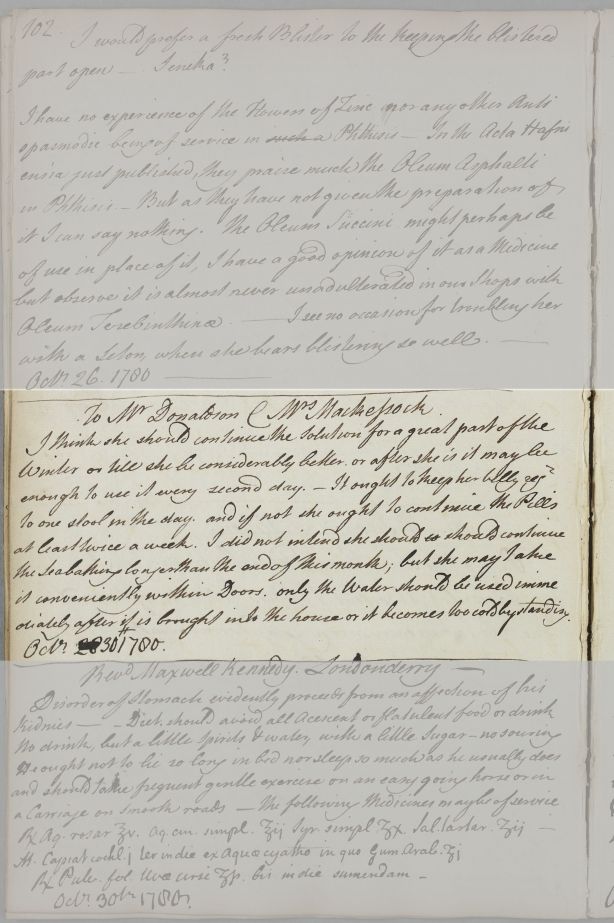 102.
I would prefer a fresh Blister to the keeping the blistered
part open — Seneka?
I have no experience of the Flowers of Zinc nor any other Anti
spasmodic being of service in such a Phthisis — In the Acta Hafni
ensia just published, they praise much the Oleum Asphalti
in Phthisis — But as they have not given the preparation of
it I can say nothing. The Oleum Succini might perhaps be
of use in place of it, I have a good opinion of it as a Medicine
but observe it is almost never unadulterated in our Shops with
Oleum Terebinthinæ — I see no occasion for troubling her
with a Seton, when she bears blistering so well. —
Octr. 26. 1780
To Mr Donaldson C Mrs Mackessock.
I think she should continue the Solution for a great part of the
Winter or till she be considerably better. or after she is it may be
enough to use it every second day. — It ought to keep her belly regr
to one stool in the day. and if not she ought to continue the Pills
at least twice a week. I did not intend she should so should continue
the Seabathing longer than the end of this month; but she may take
it conveniently within Doors. only the Water should be used imme
diately after it is brought into the house or it becomes too cold by standing.
Octr. 30th 1780.
Revd. Maxwell Kennedy. Londonderry —
Disorder of Stomach evidently proceeds from an affection of his
Kidnies — Diet should avoid all Acescent or flatulent food or drink
No drink, but a little Spirits & water, with a little Sugar — no souring
He ought not to lie so long in bed nor sleep so much as he usually does
and should take frequent gentle exercise on an easy going horse or in
a Carriage on smooth roads — the following Medicines may be of service
℞ Aq. rosar ℥v. Aq. cin. simpl. ℥ij Syr. simpl. ℥x. Sal. tartar. ℥ij —
M. Capiat cochl. j ter in die ex Aquæ cyatho in quo Gum. Arab. ℥j
℞ Pulv. fol. Uvæ ursi ℥p. bis in die sumendam —
Octr. 30th. 1780.